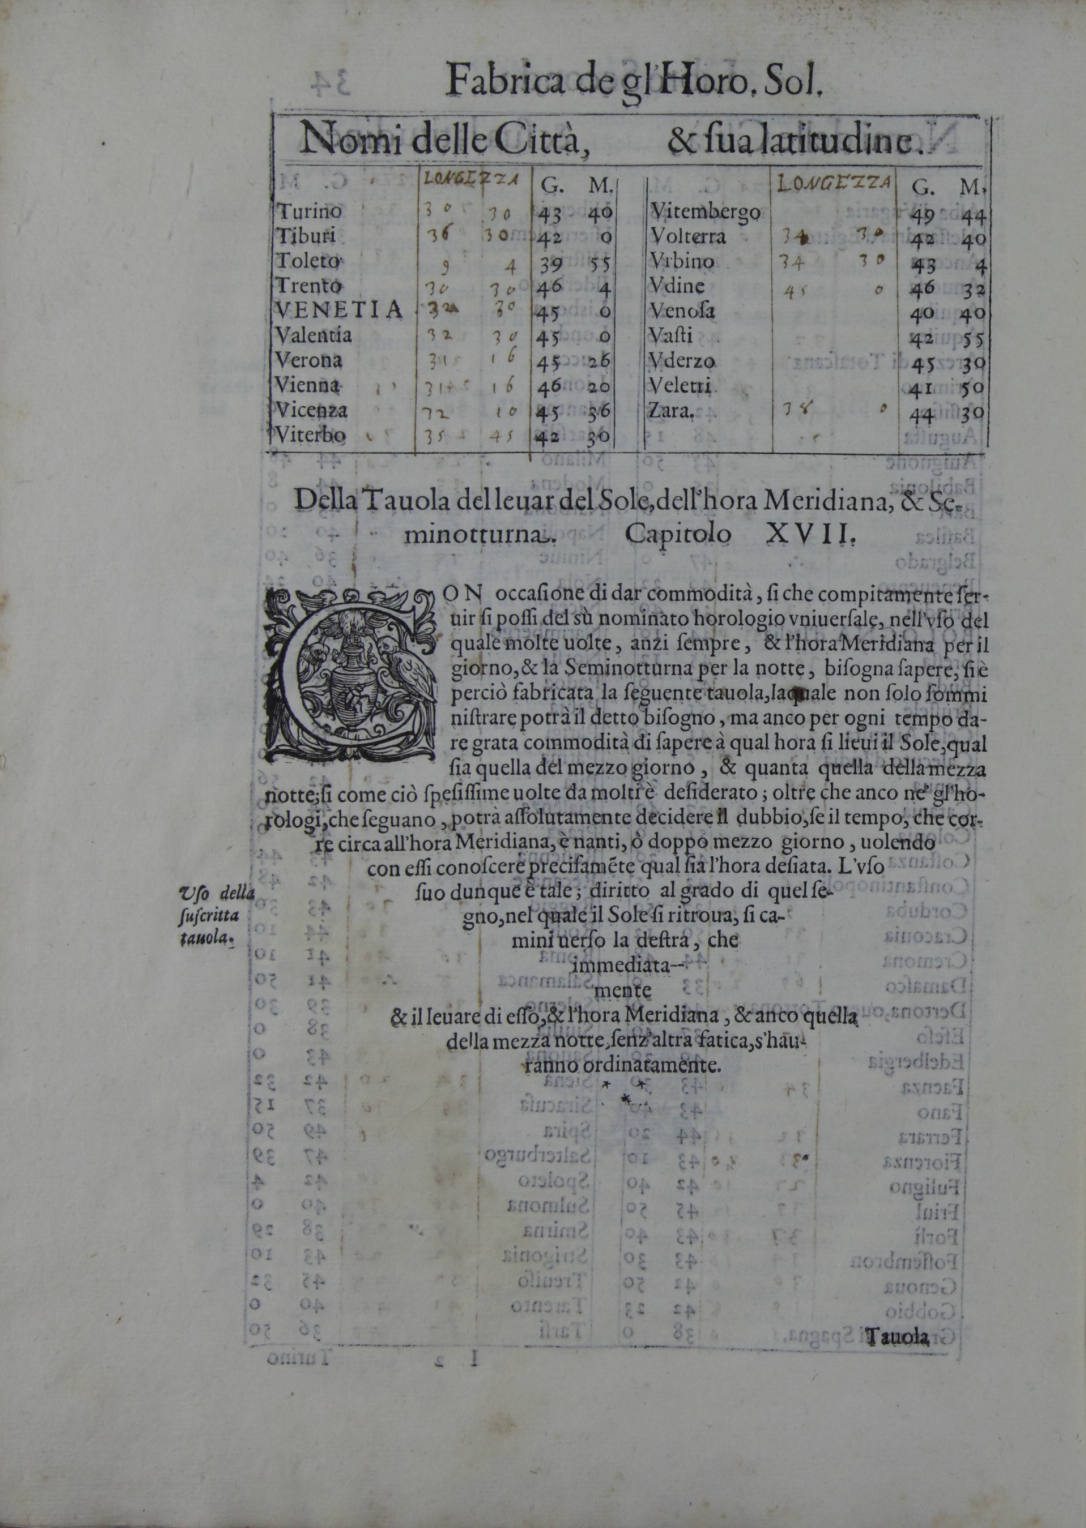 Fabrica de gl'Horo. Sol.
Nomi delle Città, & ſua latitudine.
LONGEZZA G. M. LONGEZZA G. M.
Turino 30 30 43 40 Vitembergo 49 44
Tiburi 36 30 42 0 Volterra 34 30 42 40
Toleto 9 4 39 55 Vrbino 34 30 43 4
Trento 30 30 46 4 Vdine 45 0 46 32
VENETIA 32 30 45 0 Venoſa 40 40
Valentia 32 30 45 0 Vaſti 42 55
Verona 31 16 45 26 Vderzo 45 30
Vienna 31 16 46 20 Veletri 41 50
Vicenza 32 10 45 36 Zara. 38 0 44 30
Viterbo 35 45 42 30
Della Tauola del leuar del Sole, dell'hora Meridiana, & Se-
minotturna. Capitolo XVII.
CON occaſione di dar commodità, ſi che compitamente ſer-
uir ſi poſſi del sù nominato horologio vniuerſale, nell'vſo del
quale molte uolte, anzi ſempre, & l'hora Meridiana per il
giorno, & la Seminotturna per la notte, biſogna ſapere, ſi è
perciò fabricata la ſeguente tauola, laquale non ſolo ſommi
niſtrare potrà il detto biſogno, ma anco per ogni tempo da-
re grata commodità di ſapere à qual hora ſi lieui il Sole, qual
ſia quella del mezzo giorno, & quanta quella della mezza
notte; ſi come ciò ſpeſiſſime uolte da molti è deſiderato; oltre che anco ne' gl'ho-
rologi, che ſeguano, potrà aſſolutamente decidere il dubbio, ſe il tempo, che cor-
re circa all'hora Meridiana, è nanti, ò doppo mezzo giorno, uolendo
con eſſi conoſcere preciſamēte qual ſia l'hora deſiata. L'vſo
Vſo della ſuſcritta tauola.
ſuo dunque è tale; diritto al grado di quel ſe-
gno, nel quale il Sole ſi ritroua, ſi ca-
mini uerſo la deſtra, che
immediata-
mente
& il leuare di eſſo, & l'hora Meridiana, & anco quella
della mezza notte, ſenz'altra fatica, s'hau-
ranno ordinatamente.
* *
*
Tauola